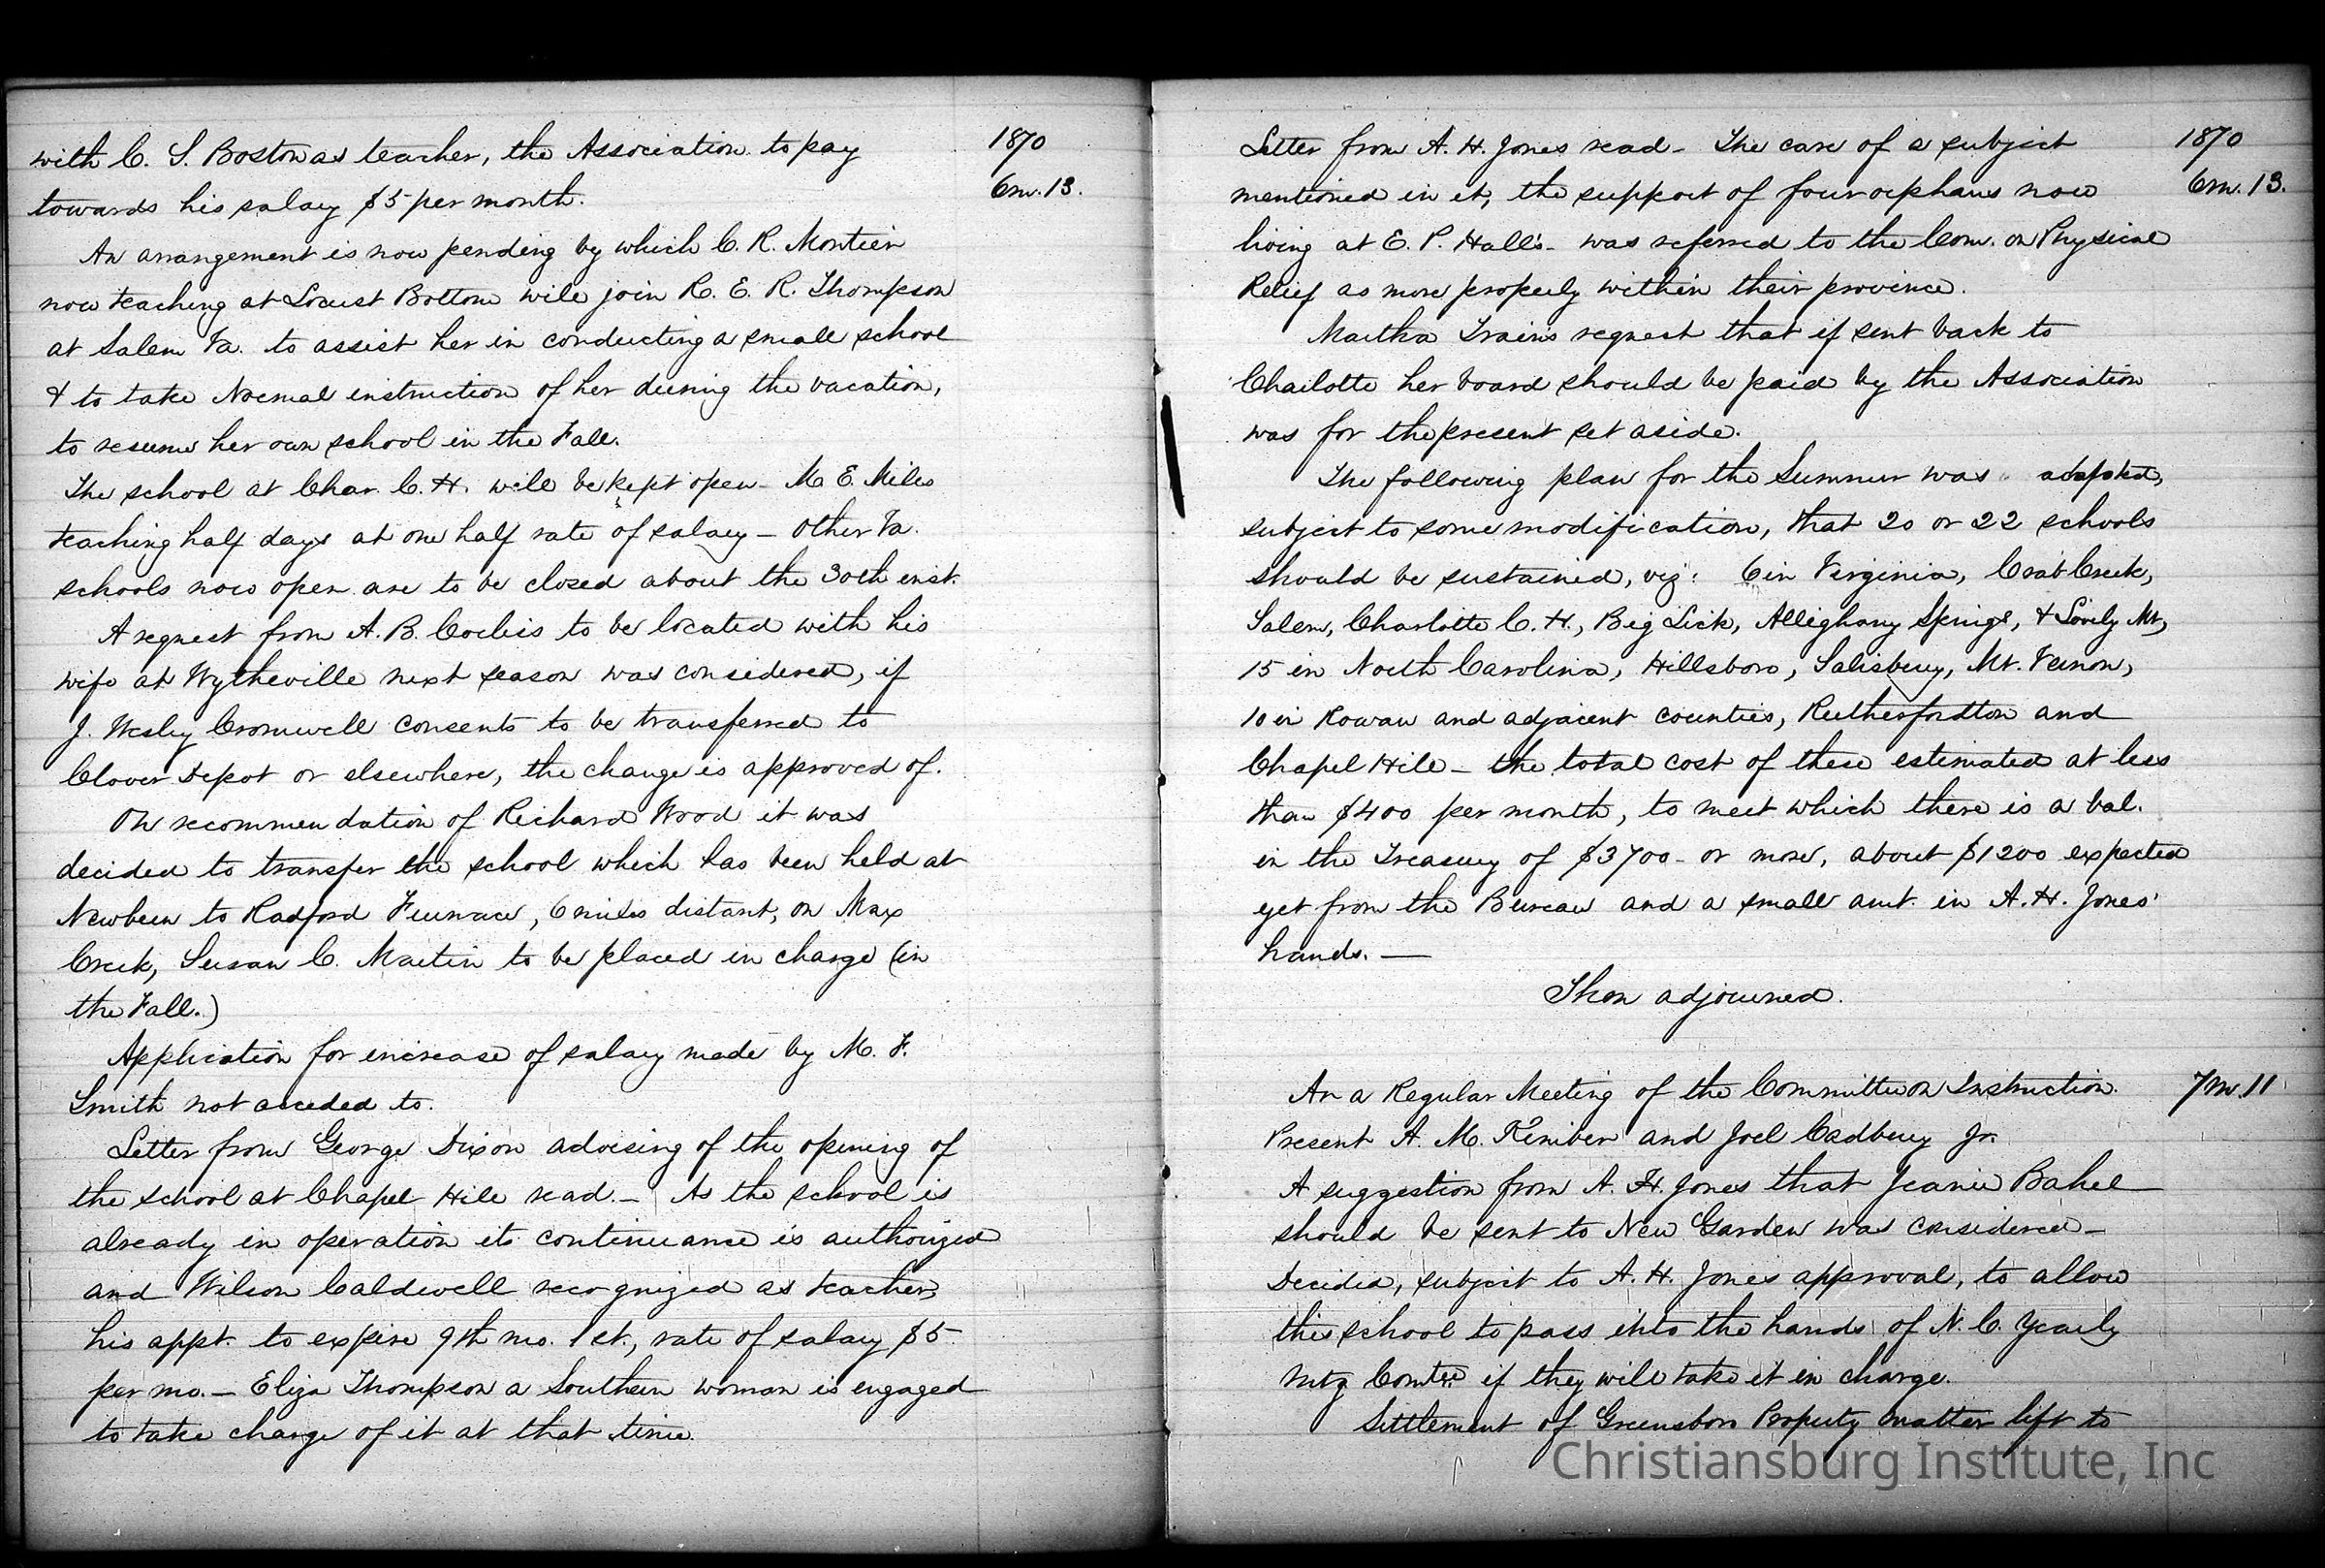 1870
6m. 13.
with C. S. Boston as teacher, the Association to pay
towards his salary $5 per month.
An arrangement is now pending by which C. R. Montier
now teaching at Locust Bottom will join R. E. R. Thompson
at Salem Va. to assist her in conducting a small school
& to take Normal instruction of her during the vacation,
to resume her own school in the Fall.
The school at Char. C. H. will be kept open - M E. Miles
teaching half days at one half rate of salary - Other Va.
schools now open are to be closed about the 30th inst.
A request from A. B. Corliss to be located with his
wife at Wytheville next season was considered, if
J. Wesley Cromwell consents to be transferred to
Clover Depot or elsewhere, the change is approved of.
On recommendation of Richard Wood it was
decided to transfer the school which has been held at
Newbern to Radford Furnace, 6 miles distant, on Max
Creek, Susan C. Martin to be placed in charge (in
the Fall.)
Application for increase of salary made by M. F.
Smith not acceded to.
Letter from George Dixon advising of the opening of
the school at Chapel Hill read. - As the school is
already in operation its continuance is authorized
and Wilson Caldwell recognized as teacher,
his appt. to expire 9th mo. 1st., rate of salary $5
per mo. - Eliza Thompson a Southern woman is engaged
to take charge of it at that time.
1870
6m. 13.
Letter from A. H. Jones read - The care of a subject
mentioned in it, the support of four orphans now
living at E. P. Hall's - was referred to the Com. on Physical
Relief as more properly within their province.
Martha Train's request that if sent back to
Charlotte her board should be paid by the Association
was for the present set aside.
The following plan for the Summer was adopted,
subject to some modification, that 20 or 22 schools
should be sustained, viz: 6 in Virginia, Crab Creek,
Salem, Charlotte C. H., Big Lick, Alleghany Springs, & Lovely Mt,
15 in North Carolina, Hillsboro, Salisbury, Mt. Vernon,
10 in Rowan and adjacent counties, Rutherfordton and
Chapel Hill - the total cost of these estimated at less
than $400 per month, to meet which there is a bal.
in the Treasury of $3700 - or more, about $1200 expected
yet from the Bureau and a small amt. in A. H. Jones'
hands. —
Then adjourned.
7m. 11
At a Regular Meeting of the Committee on Instruction.
Present A. M. Kimber and Joel Cadbury Jr.
A suggestion from A. H. Jones that Jeanie Bahel
should be sent to New Garden was considered -
Decided, subject to A. H. Jones approval, to allow
this school to pass into the hands of N. C. Yearly
Mtg Comtee if they will take it in charge.
Settlement of Greensboro Property matter left to
Christiansburg Institute, Inc